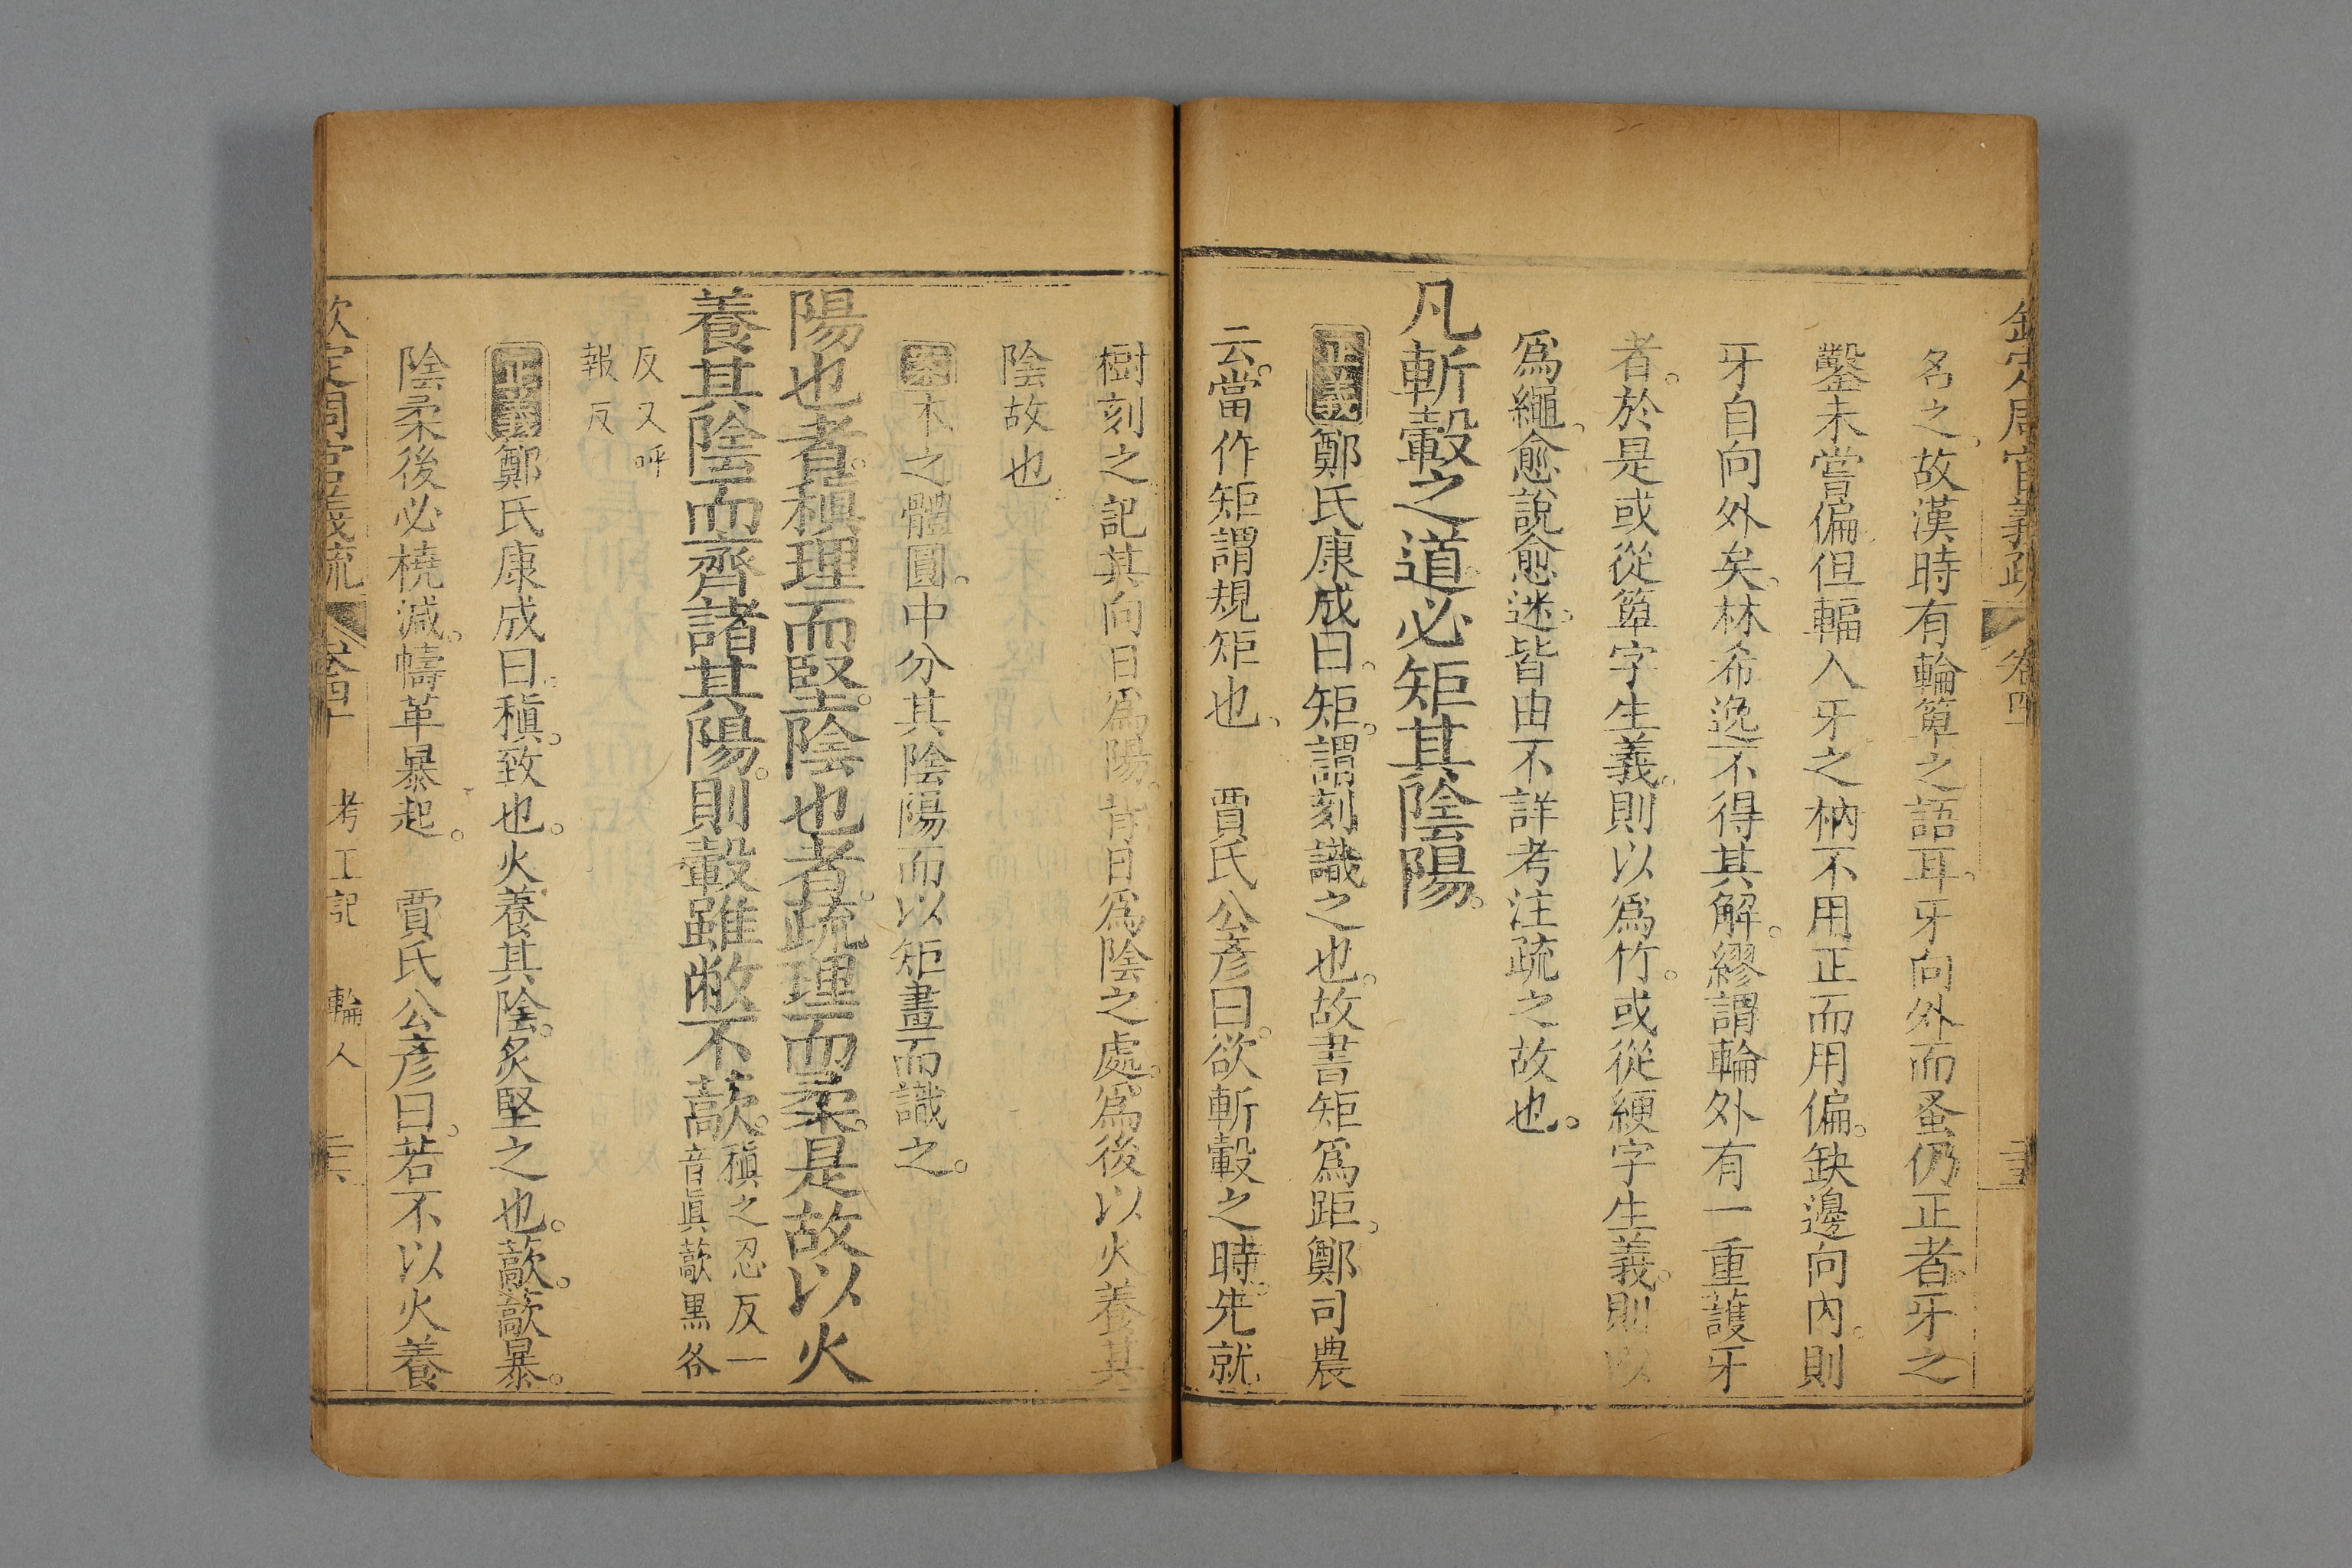 欽定周官義疏 卷四十
名之故漢時有輪箄之語耳牙向外而蚤仍正者牙之
鑿未嘗偏但輻入牙之枘不用正而用偏缺邊向內則
牙自向外矣林希逸不得其解繆謂輪外有一重䕶牙
者於是或從箄字生義則以爲竹或從綆字生義則以
爲繩愈說愈迷皆由不詳考注疏之故也
凡斬轂之道必矩其陰陽
正義鄭氏康成曰矩謂刻識之也故書矩爲距鄭司農
云當作矩謂規矩也 賈氏公彥曰欲斬轂之時先就
樹刻之記其向日爲陽背日爲陰之處爲後以火養其
陰故也
案木之體圓中分其陰陽而以矩畫而識之
陽也者稹理而堅陰也者疏理而柔是故以火
養其陰而齊諸其陽則轂雖敝不藃稹之忍反一音眞藃黑各
反又呼報反
正義鄭氏康成曰稹致也火養其陰炙堅之也藃藃暴
陰柔後必橈減幬革暴起 賈氏公彥曰若不以火養
欽定周官義疏 卷四十 考工記 輪人